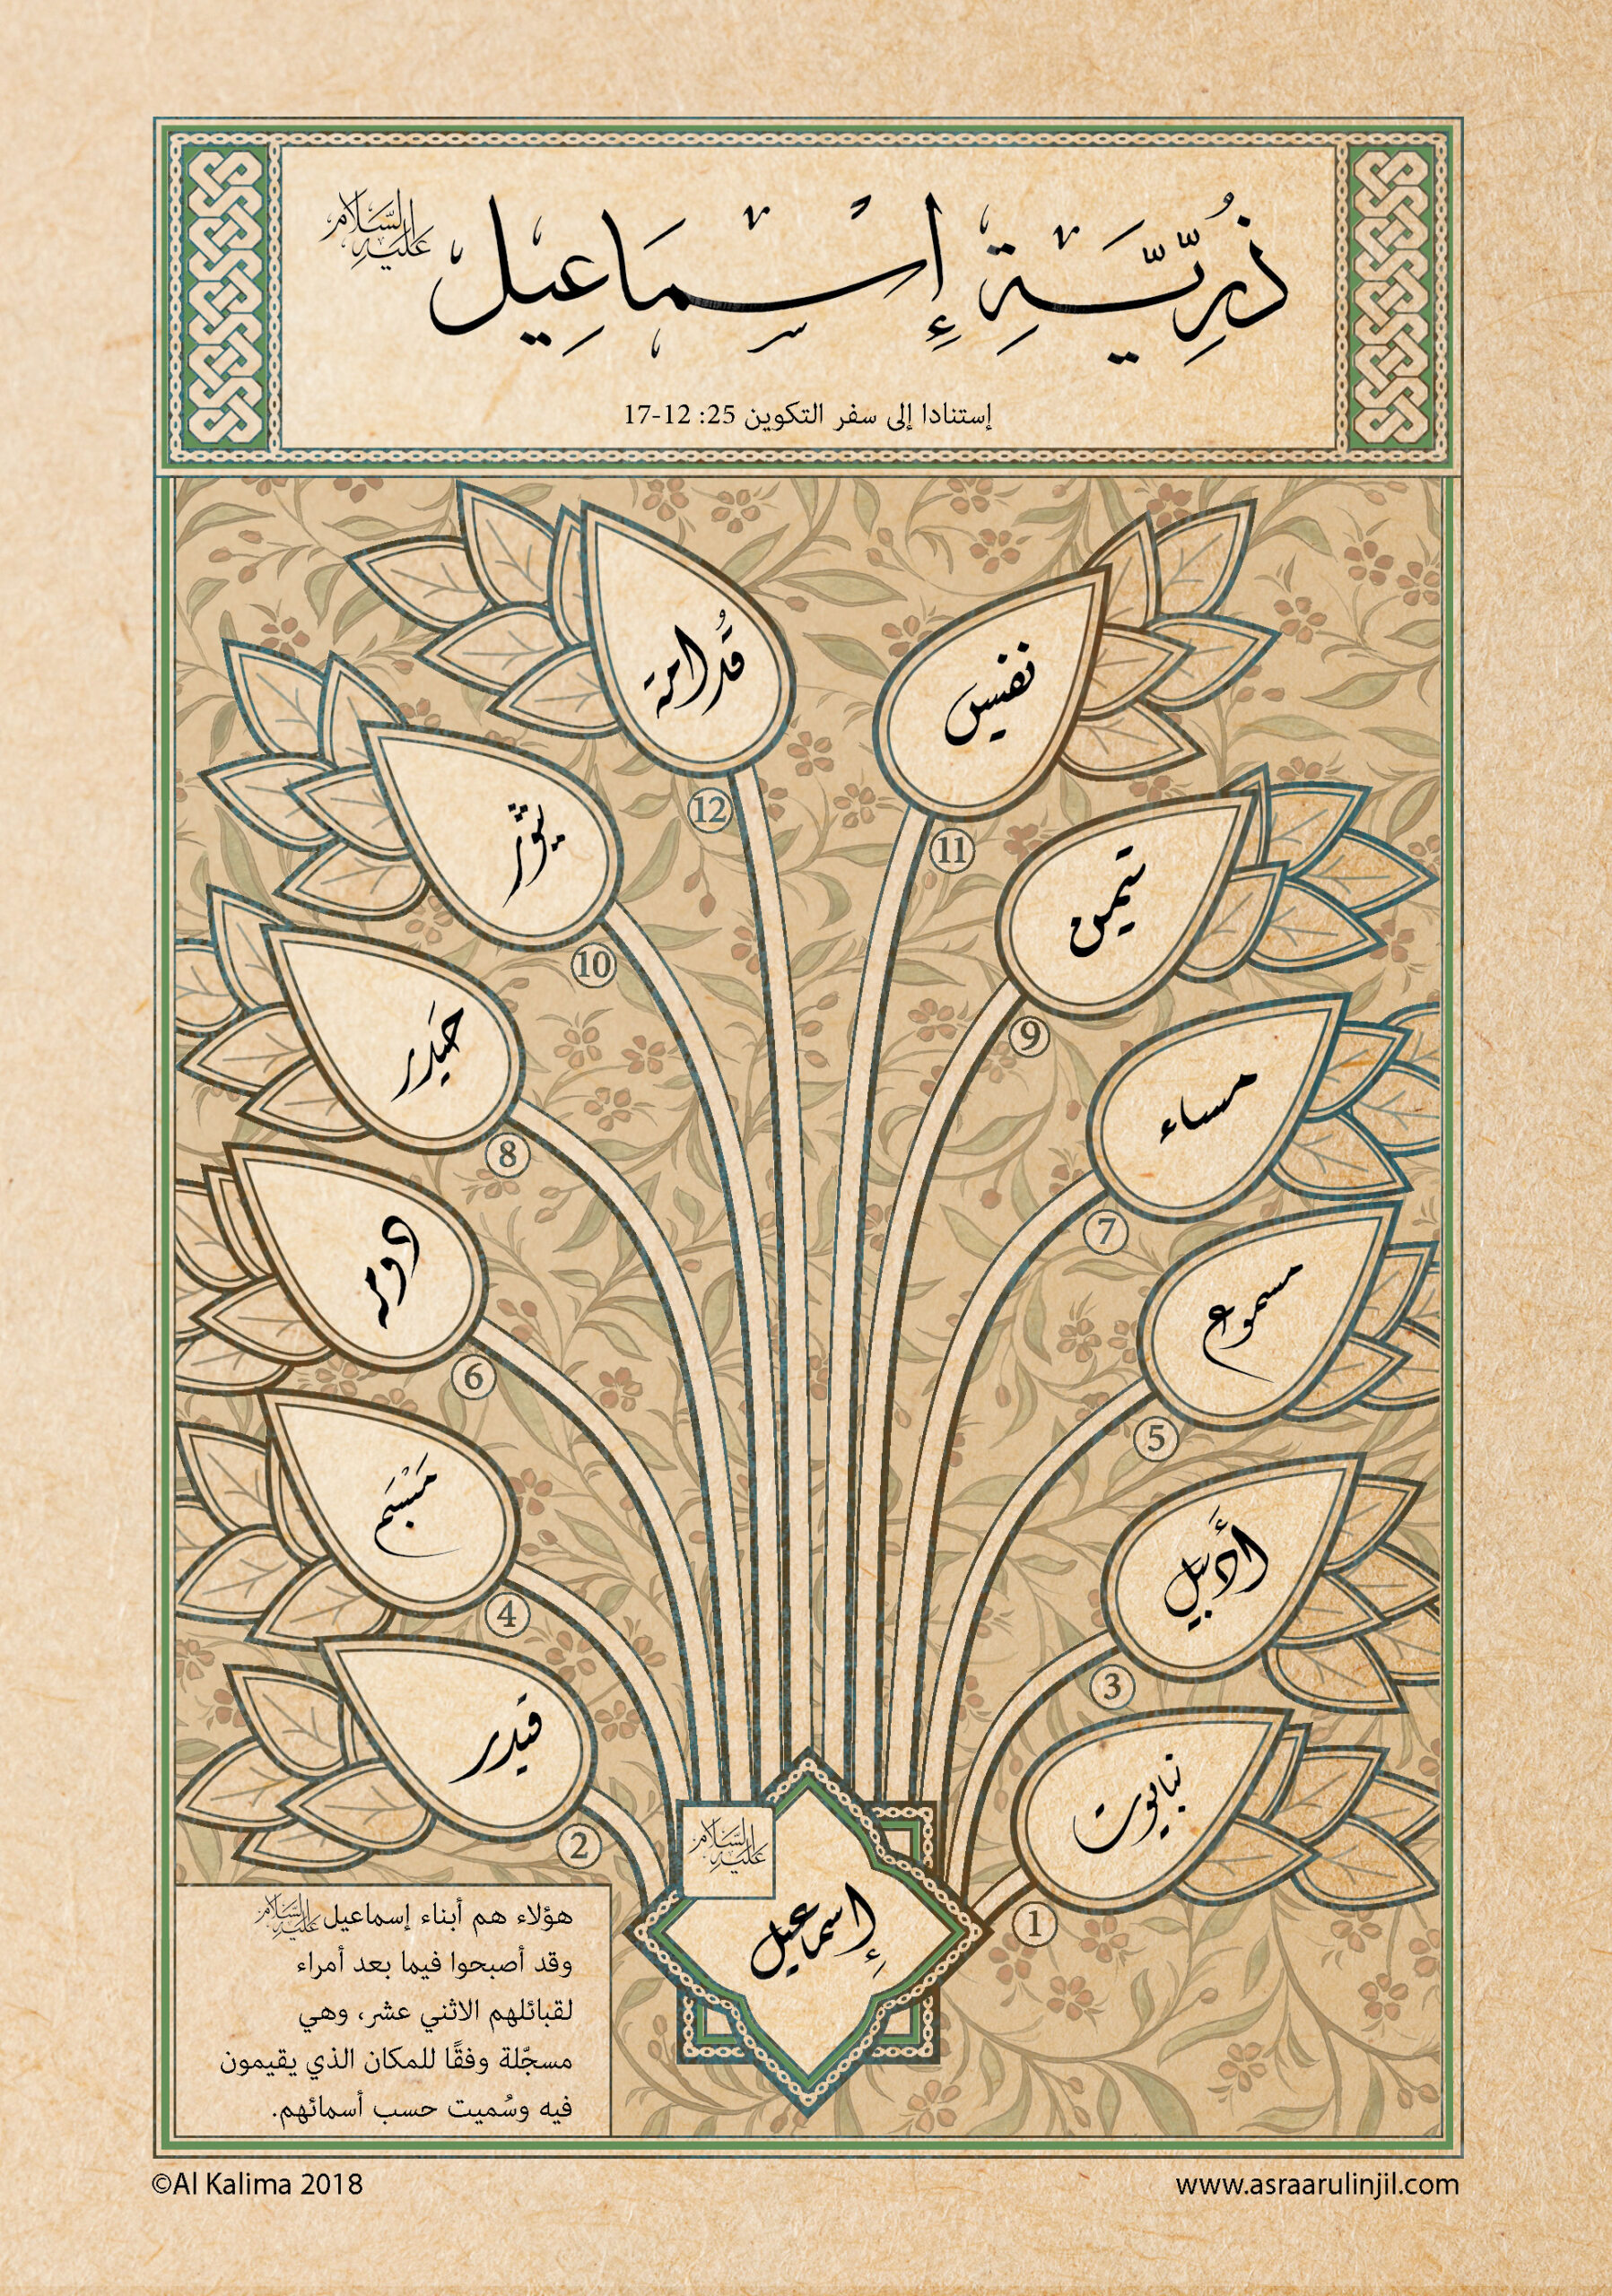 ذُرِّيَّةِ إِسْمَاعِيل عليه السلام
إستنادا إلى سفر التكوين 25: 12-17
قُدامة
12
نفيس
11
يثور
10
تيمن
9
حَيدر
8
مساء
7
دومه
6
مسموع
5
مَبْسَم
4
أَدبيل
3
قيدر
2
نبايوت
1
عليه السلام
إِسماعيل
هؤلاء هم أبناء إسماعيل عليه السلام
وقد أصبحوا فيما بعد أمراء
لقبائلهم الاثني عشر، وهي
مسجّلة وفقًا للمكان الذي يقيمون
فيه وسُميت حسب أسمائهم.
©Al Kalima 2018
www.asraarulinjil.com